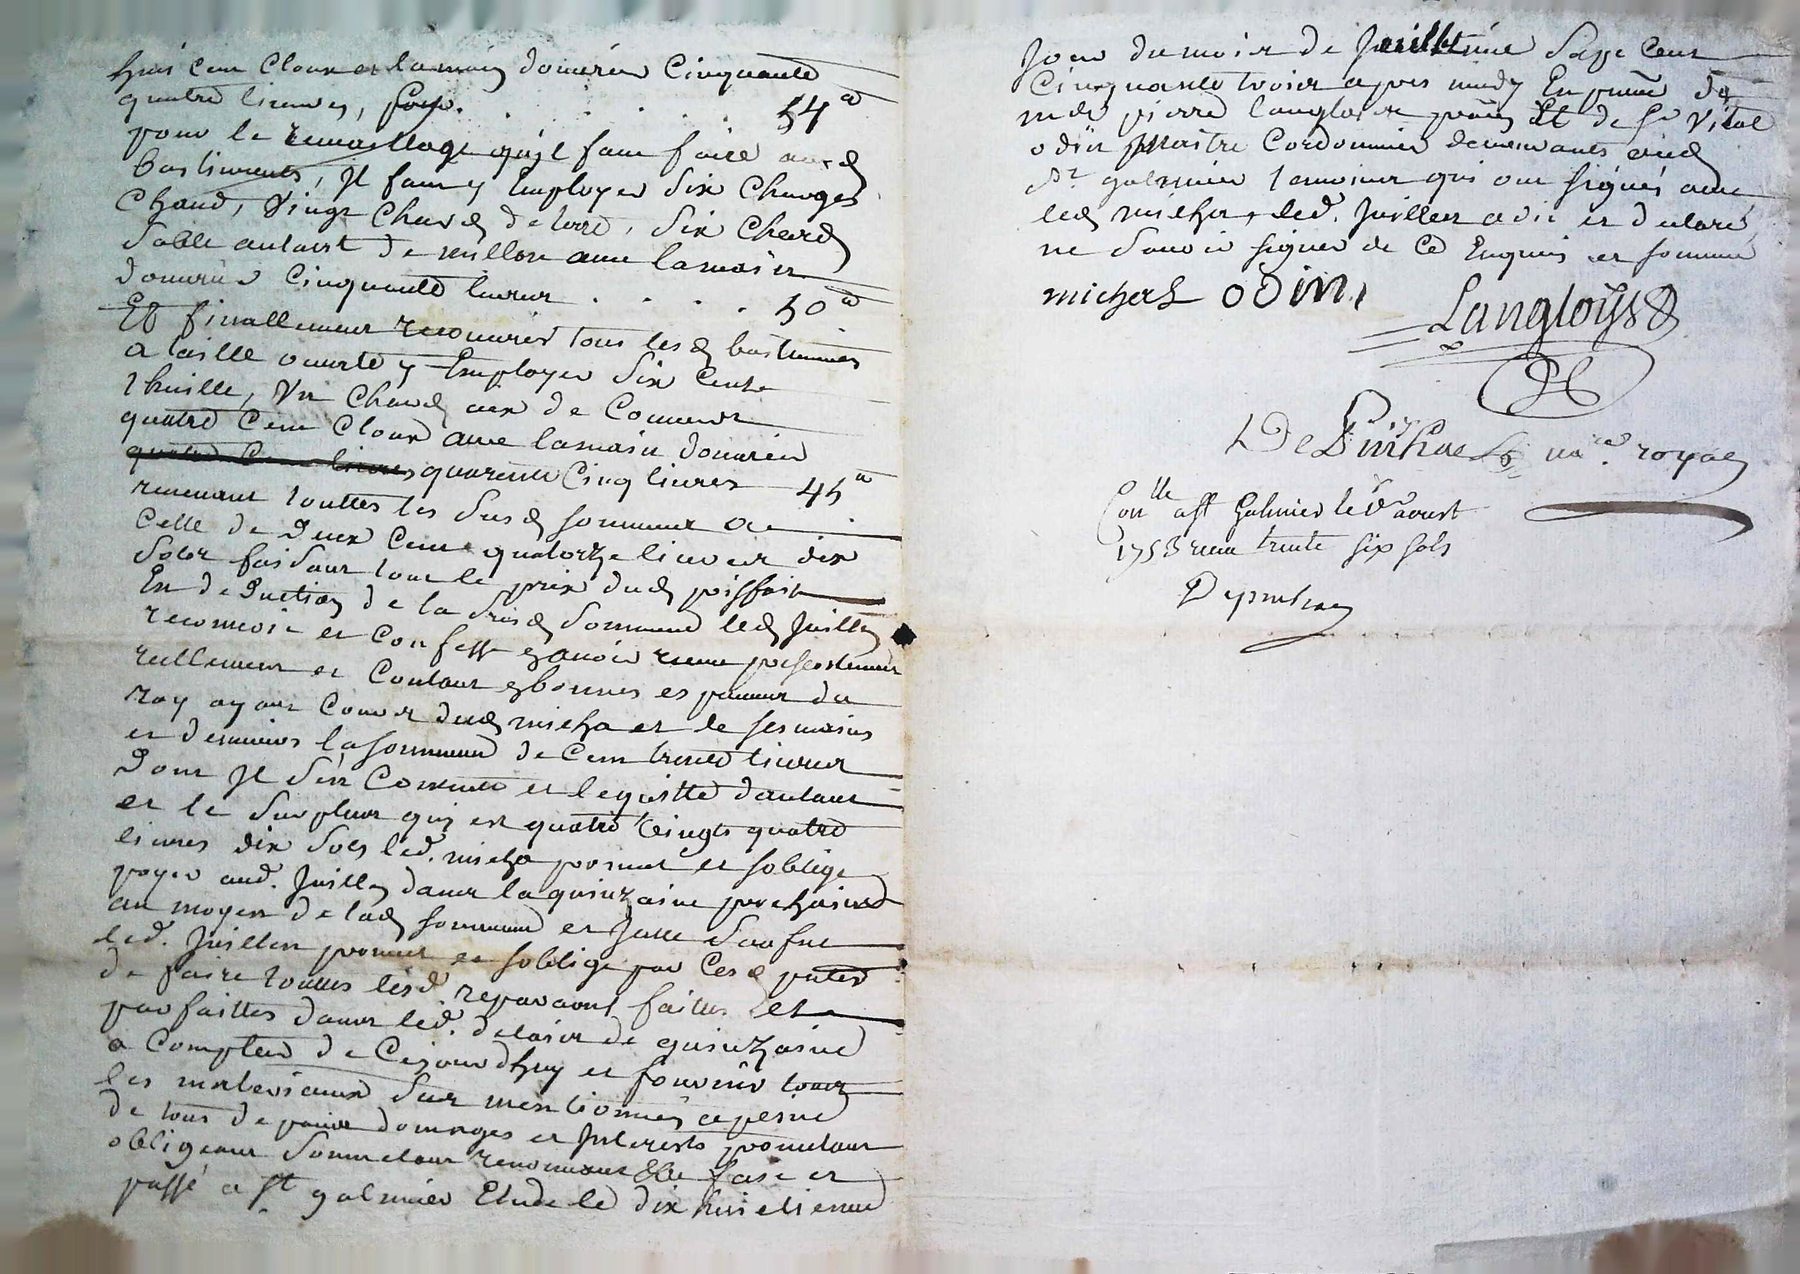 huis cent cloux et la main douvrier Cinquante
quatre livres, Cy . . . . . . 54ᵗᵗ
pour le remaillage quil faut faire auxd
bastiments, Il faut y Employer Six Charges
Chaud, Vingt Chard de terre, Six Chard
Sable autant de meillon avec la main
douvrier Cinquante livres . . . . . 50ᵗᵗ
Et finallement recouvrir tous lesd bastiments
a taille ouverte y Employer Six Cents
thuille, Un Chard de Couverts
quatre Cent Cloux avec la main douvrier
quarente Cinq livres 45ᵗᵗ
revenant touttes les Susd sommes a
Celle de Deux Cent quatorze livres dix
Sols faisant tout le prix dud prisfait
En deduction de la Susd Somme led Juillen
reconnoit et Confesse avoir receu presentement
reellement et Contant en bonnes especes du
roy ayant Cours dud micha et de ses mains
et deniers la somme de Cent trente livres
Dont Il S'en Contente et le quitte d'autant
et le Surplus qui est quatre Vingts quatre
livres dix Sols led. micha promet et soblige
payer aud. Juillen dans la quinzaine prochaine
au moyen de lad somme et Jcelle
led. Juillen promet et soblige par Ces d pntes
de faire toutes lesd. reparaons faites et
parfaittes dans led. delais de quinzaine
a Compter de Cejourdhuy et fournir tous
les materiaux Sus mentionnés a peine
de tous depans domages et Interests promettant
obligeant Soumettant renonceant &c fait et
passé a St galmier Etude le dix huitieme
Jour du mois de Juillet mil Sept Cent
Cinquante trois apres midy En pnce de
me pierre langlois pnen et de Sr Vital
odin Maitre Cordonnier demeurants aud
St galmier temoins qui ont signés avec
led micha, led. Juillen a dit et declaré
ne Savoir signer de Ce Enquis et sommé
michas odin Langloys
Depuihac nore. royal
Conlle a St Galmier le 1r aoust
1753 receu trente six sols
Depuihac